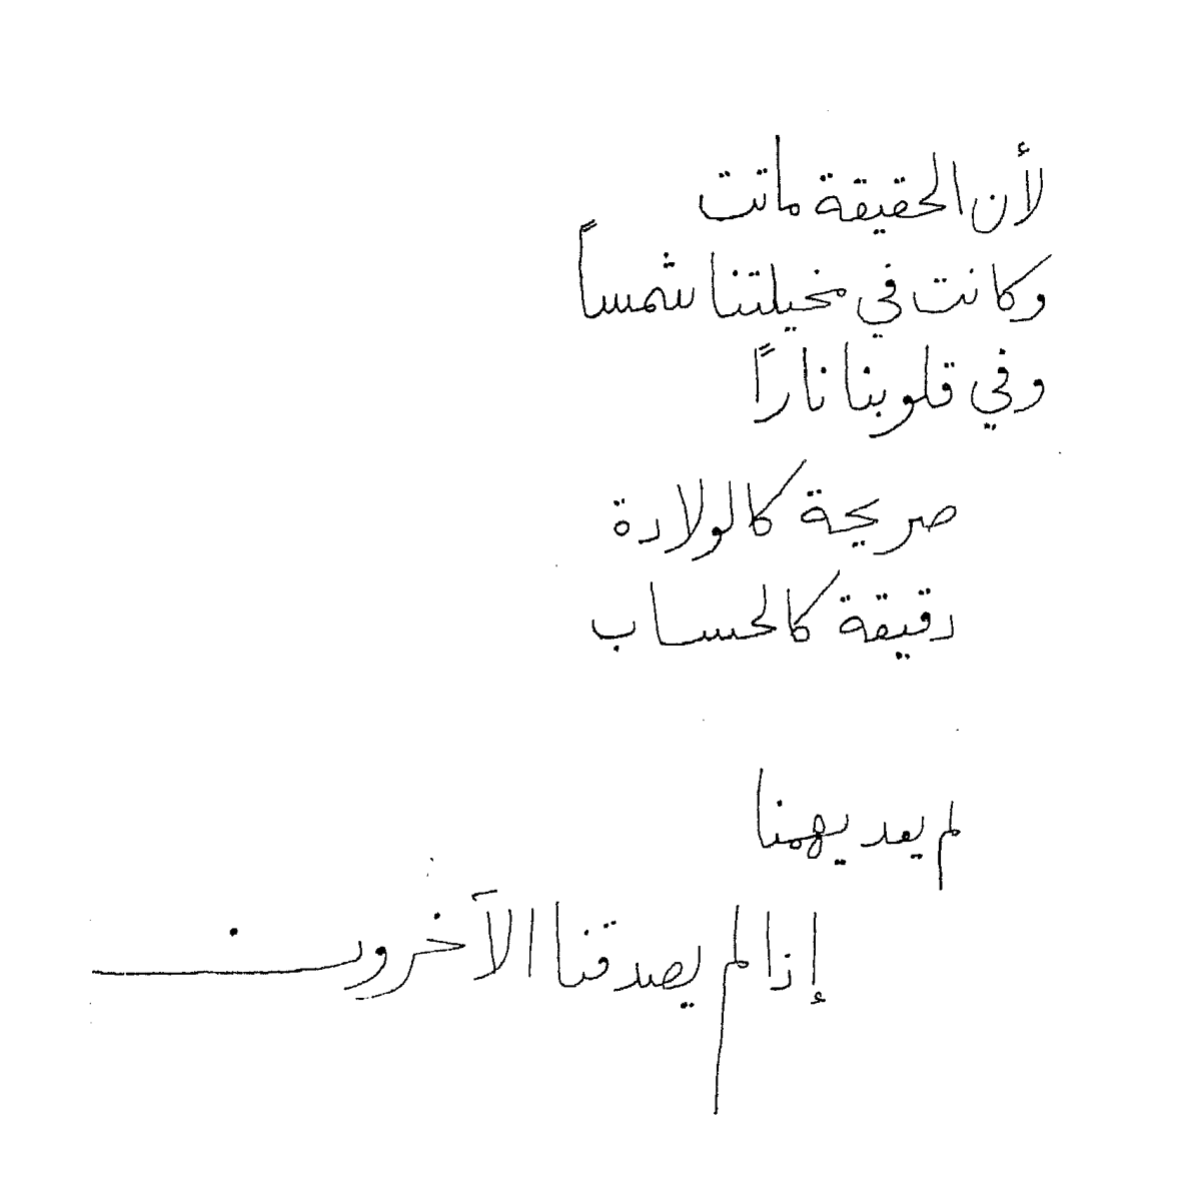 لأن الحقيقة ماتت
وكانت في مخيلتنا شمساً
وفي قلوبنا ناراً
صريحة كالولادة
دقيقة كالحساب
لم يعد يهمنا
إذا لم يصدقنا الآخرون